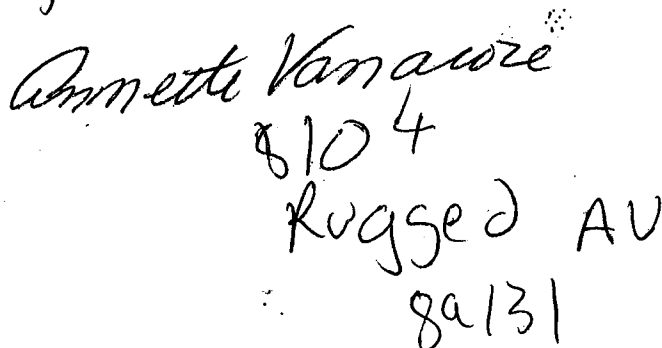 Annette Vanacore
8104
Rugged AV
89131